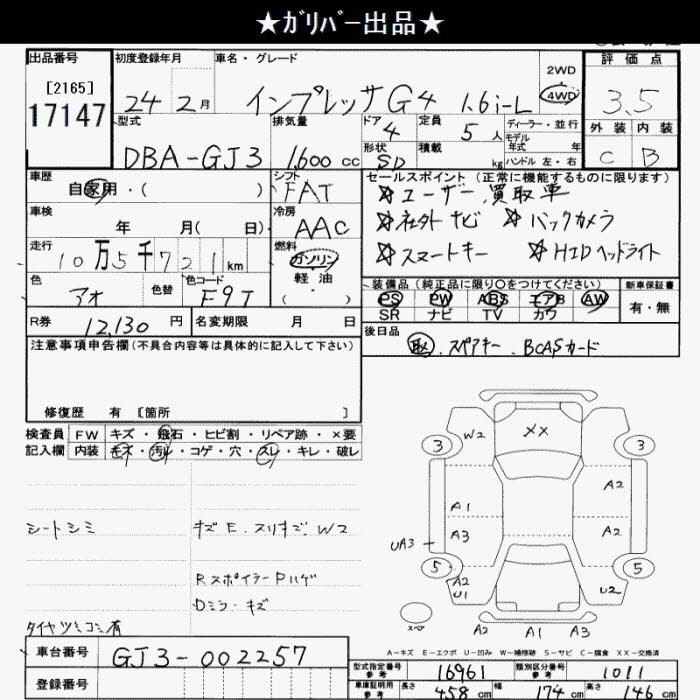 ★ｶﾞﾘﾊﾞｰ出品★
出品番号
[2165]
17147
初度登録年月 車名・グレード
24 2月 インプレッサG4 1.6i-L
2WD
4WD
評価点
3.5
外装 内装
C B
型式 排気量 ドア 定員 ディーラー・並行
DBA-GJ3 1,600cc 4 5人
モデル年式 年
形状 積載 ハンドル 左・右
SD kg
車歴 シフト
自家用・( ) FAT
車検 冷房
年 月( 日) AAC
走行 燃料
10万5千721km ガソリン
軽油
( )
色 色替 色コード
アオ F9T
R券 12,130円 名変期限 月 日
セールスポイント (正常に機能するものに限ります)
☆ユーザー買取車
☆社外ナビ ☆バックカメラ
☆スマートキー ☆HIDヘッドライト
装備品(純正品に限り○をつけてください) 新車保証書
PS PW ABS エアB AW 有・無
SR ナビ TV カワ
後日品
取.スペアキー.BCASカード
注意事項申告欄(不具合内容等は具体的に記入して下さい)
修復歴 有 [箇所 ]
検査員 FW キズ・飛石・ヒビ割・リペア跡・×要
記入欄 内装 キズ・汚レ・コゲ・穴・スレ・キレ・破レ
シートシミ キズE.スリキズ.W2
RスポイラーPハゲ
Dミラーキズ
タイヤツミコミ有
W2 XX
3 3
A1 A2
A3 A2
UA3
5 5
A2
U1 U2
スペア
A2 A1 A3
A-キズ E-エクボ U-凹み W-補修跡 S-サビ C-腐食 XX-交換済
車台番号 GJ3-002257
登録番号
型式指定番号 16961 類別区分番号 1011
車庫証明用参考 長さ 458cm 幅 174cm 高さ 146cm